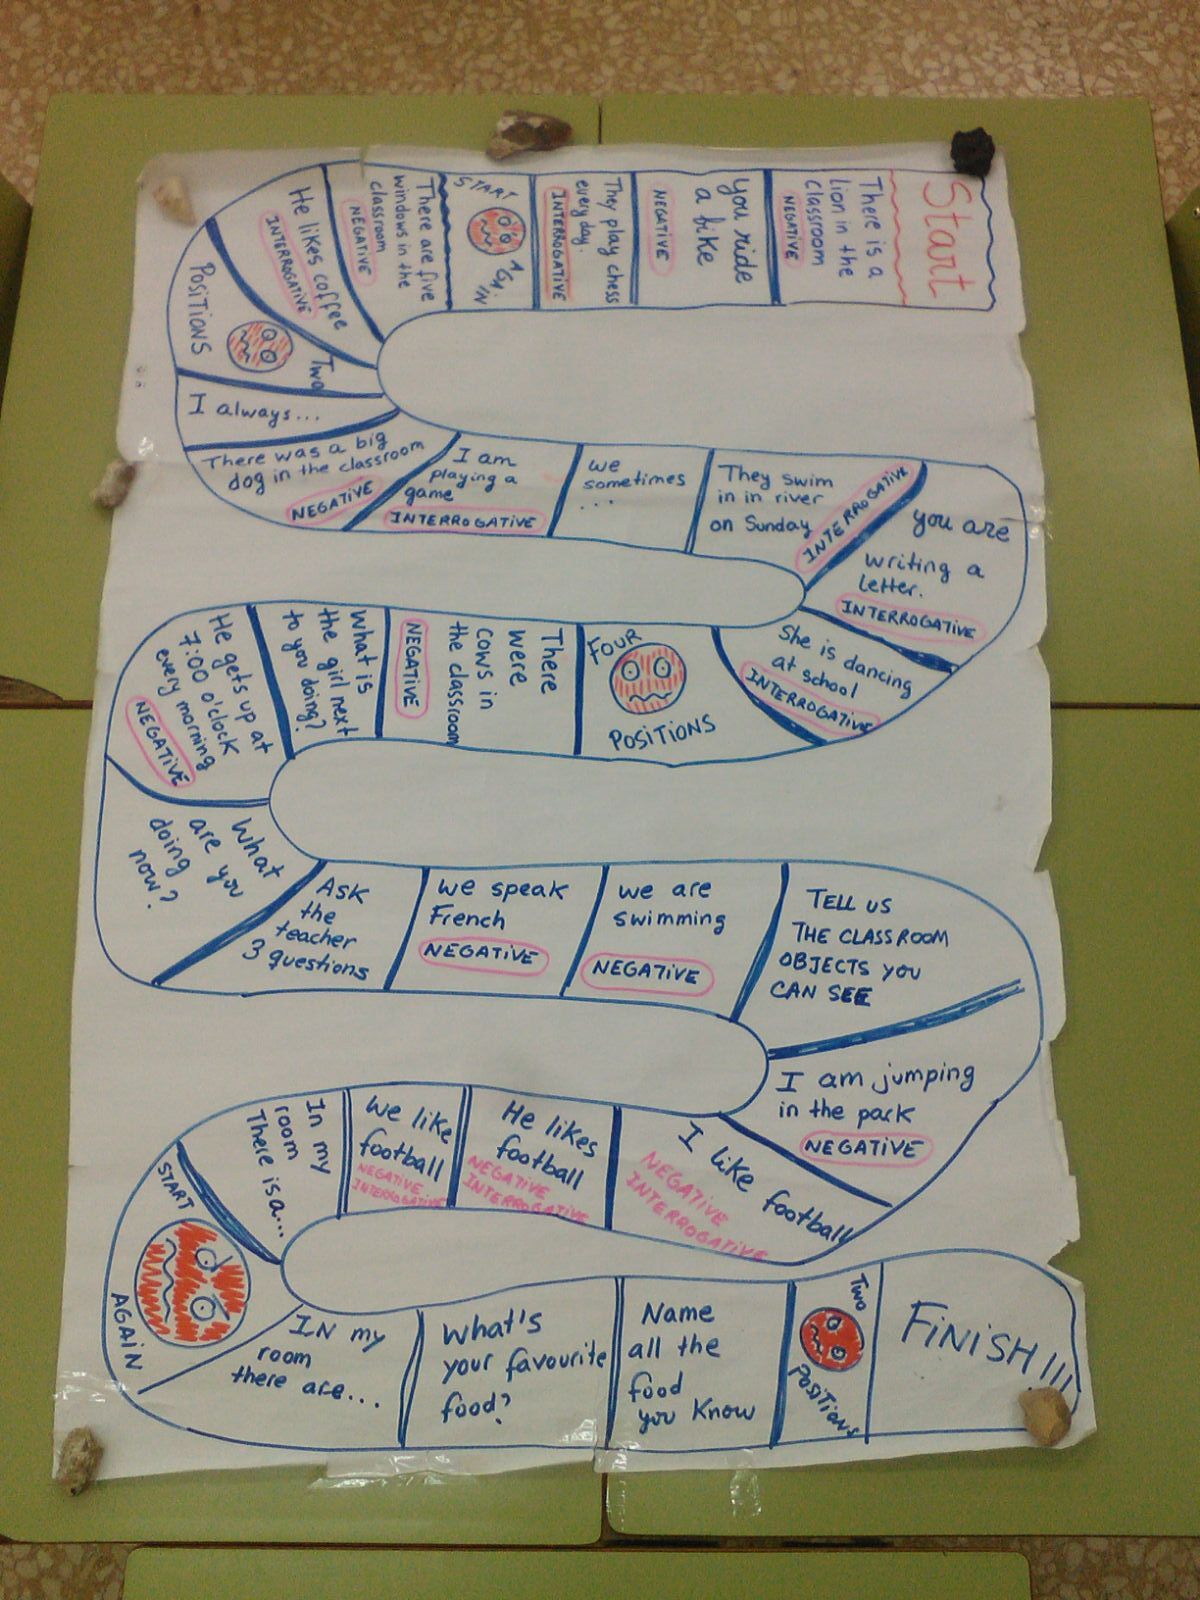 Start
There is a
Lion in the
Classroom
NEGATIVE
you ride
a bike
NEGATIVE
They play chess
every day.
INTERROGATIVE
START
AGAIN
There are five
windows in the
classroom
NEGATIVE
He likes coffee
INTERROGATIVE
TWO
POSITIONS
I always...
There was a big
dog in the classroom
NEGATIVE
I am
playing a
game
INTERROGATIVE
we
sometimes
...
They swim
in in river
on Sunday
INTERROGATIVE
you are
writing a
letter.
INTERROGATIVE
She is dancing
at school
INTERROGATIVE
FOUR
POSITIONS
There
were
cows in
the classroom
NEGATIVE
What is
the girl next
to you doing?
He gets up at
7:00 o'clock
every morning
NEGATIVE
What
are you
doing
now?
ASK
the
teacher
3 questions
we speak
French
NEGATIVE
we are
swimming
NEGATIVE
TELL US
THE CLASSROOM
OBJECTS YOU
CAN SEE
I am jumping
in the park
NEGATIVE
I like football
NEGATIVE
INTERROGATIVE
He likes
football
NEGATIVE
INTERROGATIVE
We like
football
NEGATIVE
INTERROGATIVE
In my
room
There is a...
START
AGAIN
IN my
room
there are...
What's
your favourite
food?
Name
all the
food
you know
TWO
POSITIONS
FINISH!!!